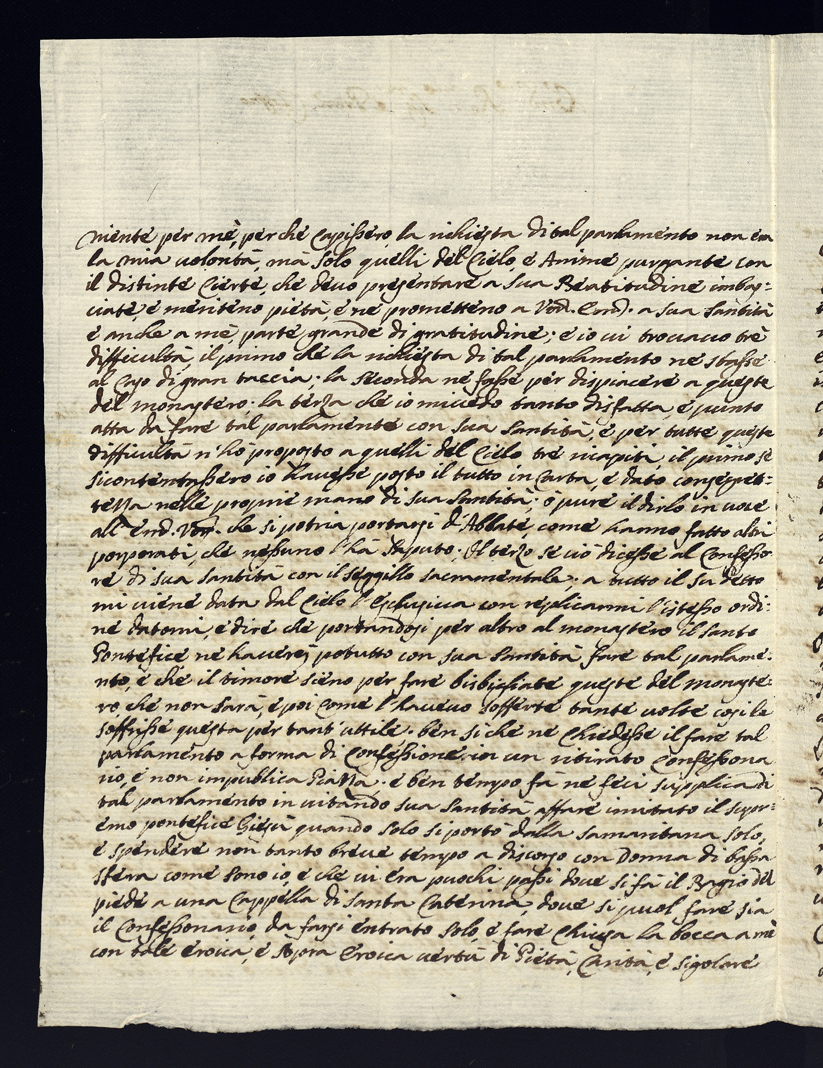 niente per mè, perche Capissero la richiesta di tal parlamento non era
la mia volontà, mà solo quelli del Cielo, e Anime purgante con
il distinte Cierte, che devo presentare a sua Beatitudine imbas:
ciate, e meriteno pietà, e ne prometteno a Vod. Emd. a sua Santità
e anche a mè, parte grande di gratitudine; e io cui trovavo trè
difficultà, il primo che la richiesta di tal parlamento ne stasse
al Caso di gran taccia; la seconda ne fasse per dispiacere a queste
del monastero; la terza che io mi cedo tanto disfatta, e punto
atta da fare tal parlamente con sua Santità, e per tutte queste
difficultà n'hò proposto a quelli del Cielo trè ricapiti, il primo se
si contentassero io havesse posto il tutto in Carta, e dato consegret:
tezza nelle proprie mano di sua Santità; ò pure il dirlo in voce
all' Emd. Vod. che si potria portarsi d'Abbate, come hanno fatto altri
porporati, che nessuno l'hà saputo; Il terzo se ciò dicesse al Confesso
re di sua Santità con il seggillo sacramentale; a tutto il su detto
mi viene data dal Cielo l'Esclusiva con replicarmi l'istesso ordi:
ne datomi, e dire che portandosi per altro al monastero il Santo
Pontefice ne haverei potutto con sua Santità fare tal parlame:
nto, e che il timore sieno per fare bisbigliate queste del monaste:
ro che non sarà, e poi come l'havevo sofferte tante volte così le
soffrisse questa per tant'uttile. ben si che ne Chiedesse il fare tal
parlamento a forma di Confessione, in un ritirato Confessona
rio, e non in publica Piazza. e ben tempo fà ne feci supplica di
tal parlamento invitando sua Santità affare imitato il supr:
emo pontefice Giesù quando solo si portò dalla Samaritana solo,
e spendere non tanto breve tempo a discorso con Donna di bassa
sfera come sono io, e che vi era puochi passi dove si fà il Bagio del
piede a una Cappella di Santa Catterina, dove si puol fare sia
il Confessonario da farsi entrato solo, e fare Chiusa la bocca a mè
con tale eroica, e sopra Eroica vertù di Pietà, Carità, e sigolare